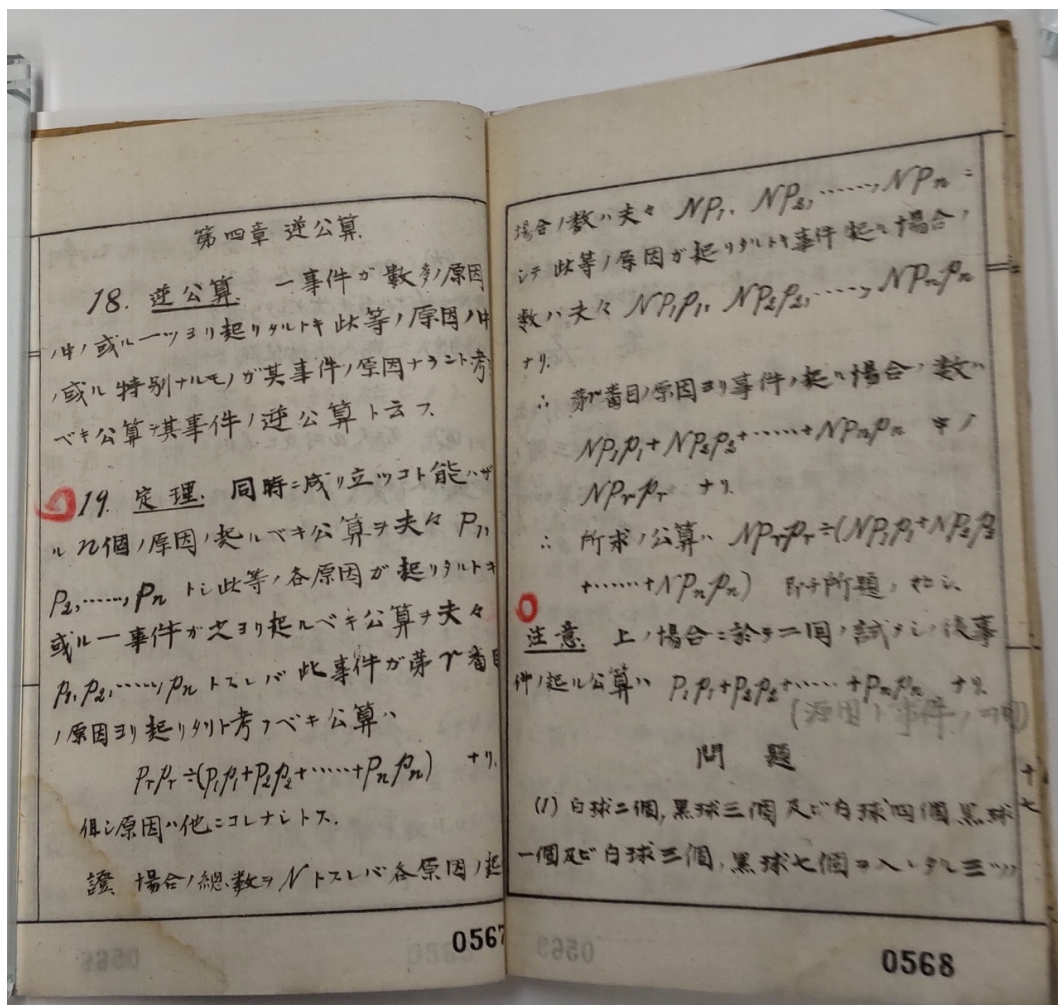 第四章 逆公算
18. 逆公算. 一事件ガ數多ノ原因
ノ中ノ或ル一ツヨリ起リタルトキ此等ノ原因ノ中
ノ或ル特別ナルモノガ其事件ノ原因ナラント考
ベキ公算ヲ其事件ノ逆公算ト云フ.
19. 定理. 同時ニ成リ立ツコト能ハザ
ル n個ノ原因ノ起ルベキ公算ヲ夫々 P1,
P2,……, Pn トシ此等ノ各原因ガ起リタルトキ
或ル一事件ガ之ヨリ起ルベキ公算ヲ夫々
p1, p2,……, pn トスレバ此事件ガ第r番目
ノ原因ヨリ起リタリト考フベキ公算ハ
Prpr÷(P1p1+P2p2+……+Pnpn) ナリ.
但シ原因ハ他ニコレナシトス.
證 場合ノ總數ヲNトスレバ各原因ノ起
0567
場合ノ數ハ夫々 NP1, NP2,……, NPn ニ
シテ此等ノ原因ガ起リタルトキ事件起ル場合ノ
數ハ夫々 NP1p1, NP2p2,……, NPnpn
ナリ.
∴ 第r番目ノ原因ヨリ事件ノ起ル場合ノ數ハ
NP1p1+NP2p2+……+NPnpn 中ノ
NPrpr ナリ.
∴ 所求ノ公算ハ NPrpr÷(NP1p1+NP2p2
+……+NPnpn) 即チ所題ノ如シ.
注意. 上ノ場合ニ於テ二回ノ試ミシ後事
件ノ起ル公算ハ P1p1+P2p2+……+Pnpn ナリ.
(源因ト事件ノ
問題
(1) 白球二個, 黒球三個及ビ白球四個, 黒球
一個及ビ白球三個, 黒球七個ヲ入レタル三ツノ
十七
0568